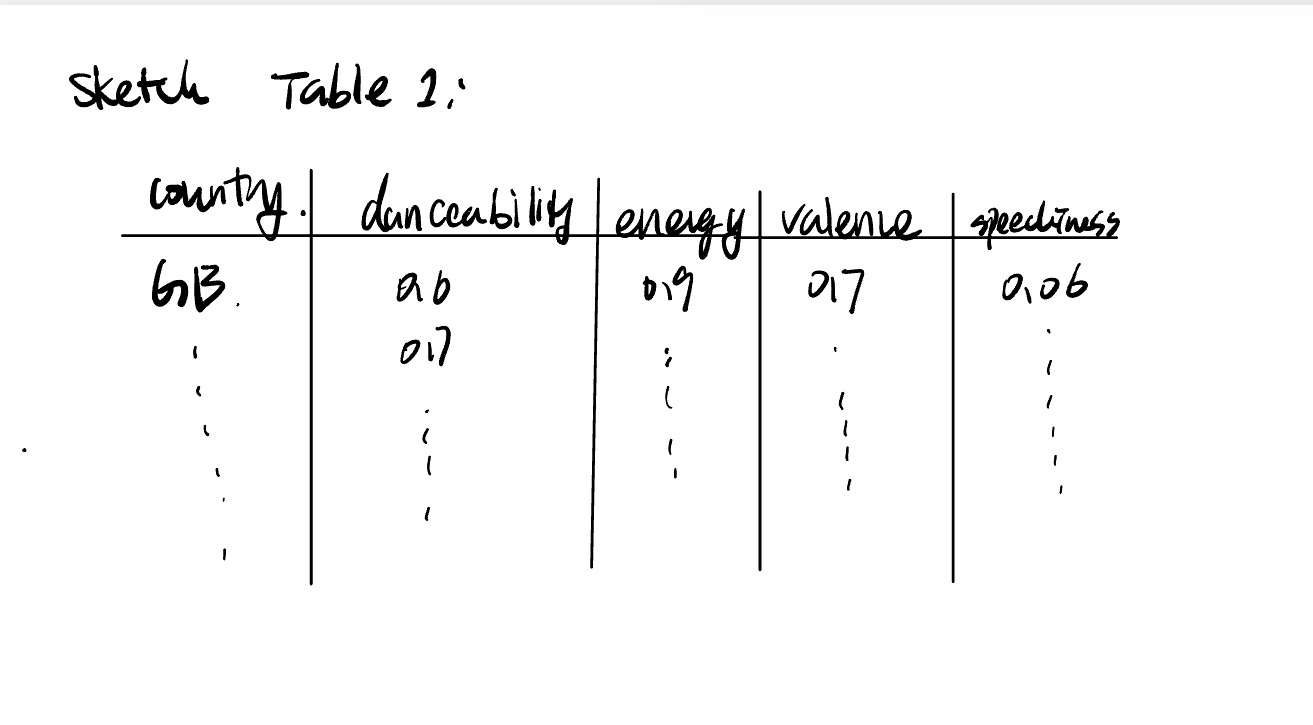 Sketch Table 1:
country. danceability energy valence speechiness
GB. 0.6 0.9 0.7 0.06
0.7